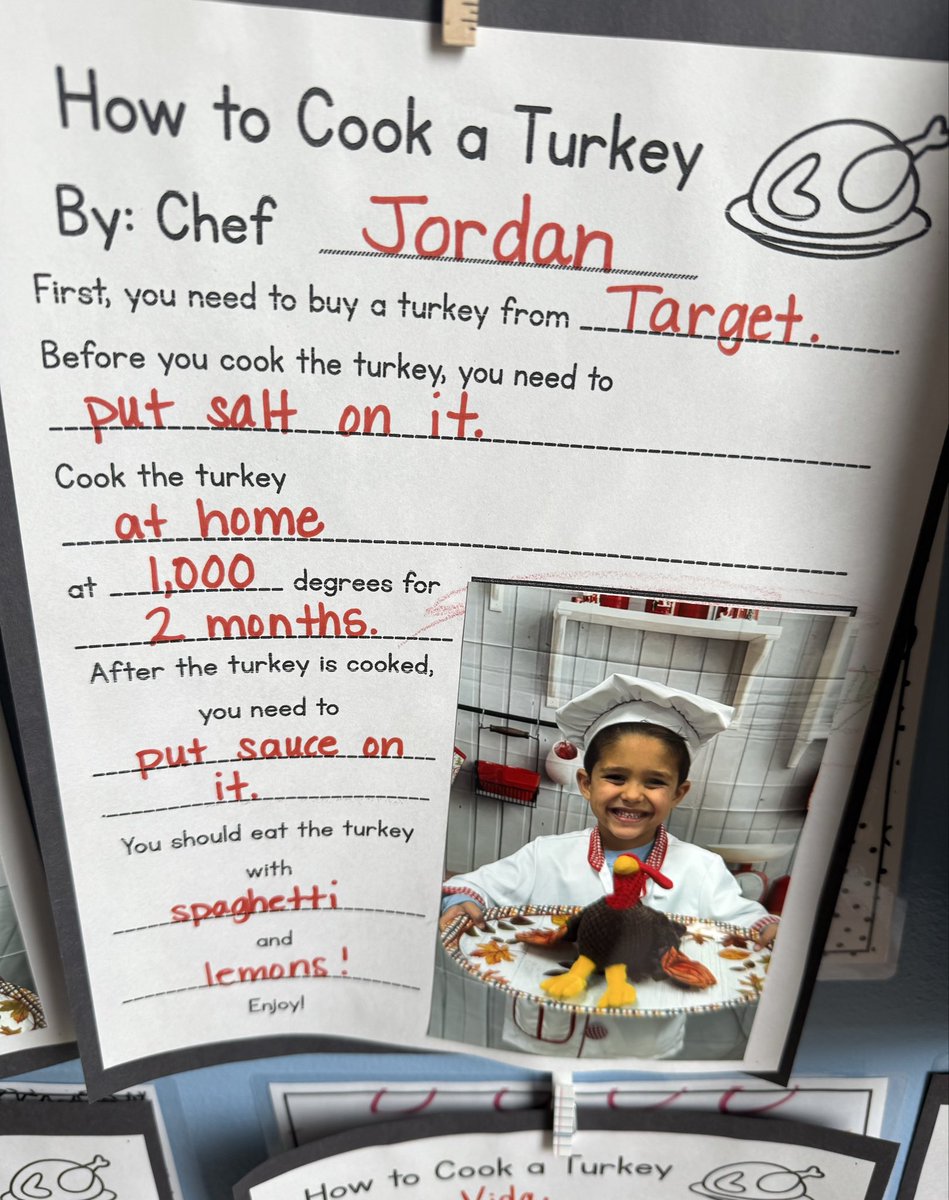 How to Cook a Turkey
By: Chef Jordan
First, you need to buy a turkey from Target.
Before you cook the turkey, you need to
put salt on it.
Cook the turkey
at home
at 1,000 degrees for
2 months.
After the turkey is cooked,
you need to
put sauce on
it.
You should eat the turkey
with
spaghetti
and
lemons!
Enjoy!
How to Cook a Turkey
Vida